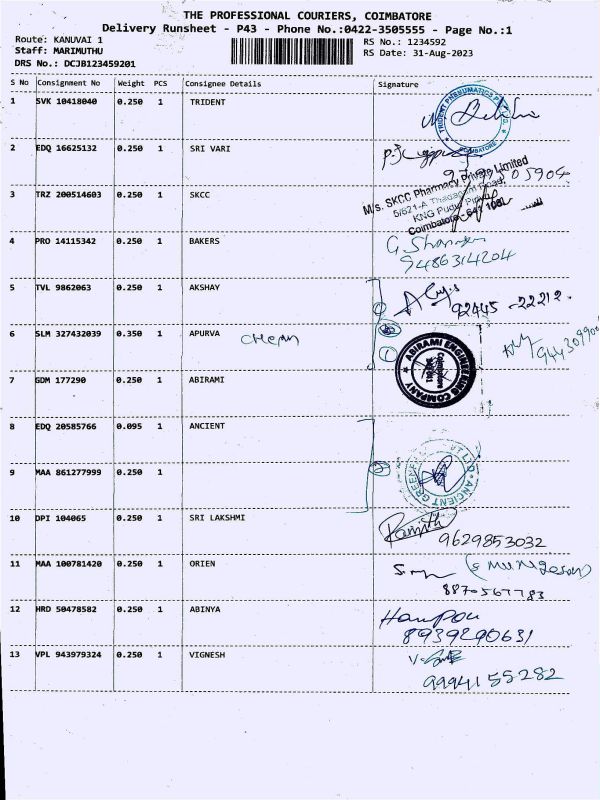 THE PROFESSIONAL COURIERS, COIMBATORE
Delivery Runsheet - P43 - Phone No.:0422-3505555 - Page No.:1
Route: KANUVAI 1
RS No.: 1234592
Staff: MARIMUTHU
RS Date: 31-Aug-2023
DRS No.: DCJB123459201
S No Consignment No Weight PCS Consignee Details Signature
1 SVK 10418040 0.250 1 TRIDENT
TRIDENT PNEUMATICS
COIMBATORE
2 EDQ 16625132 0.250 1 SRI VARI
3 TRZ 200514603 0.250 1 SKCC
M/s. SKCC Pharmacy Private Limited
5/621-A Thadagam Road,
KNG Pudur
Coimbatore - 641 108.
4 PRO 14115342 0.250 1 BAKERS
9486314204
5 TVL 9862063 0.250 1 AKSHAY
92445-22212
6 SLM 327432039 0.350 1 APURVA
7 GDM 177290 0.250 1 ABIRAMI
ABIRAMI ENGINEERING COMPANY
8 EDQ 20585766 0.095 1 ANCIENT
9 MAA 861277999 0.250 1
ANCIENT
10 DPI 104065 0.250 1 SRI LAKSHMI
Ranjith
9629853032
11 MAA 100781420 0.250 1 ORIEN
8870567783
12 HRD 50478582 0.250 1 ABINYA
8939290631
13 VPL 943979324 0.250 1 VIGNESH
9994155282